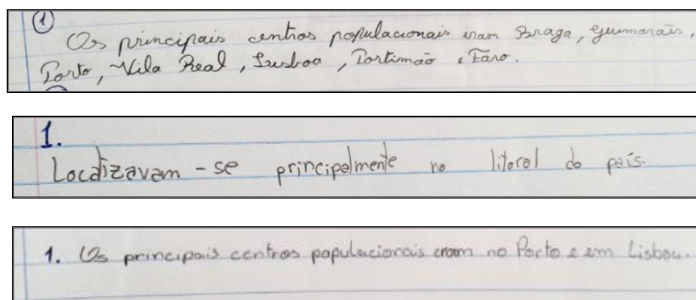 1
Os principais centros populacionais eram Braga, Guimarais,
Porto, Vila Real, Lusboa, Portimão e Faro.
1.
Localizavam-se principalmente no litoral do país.
1. Os principais centros populacionais eram no Porto e em Lisboa.